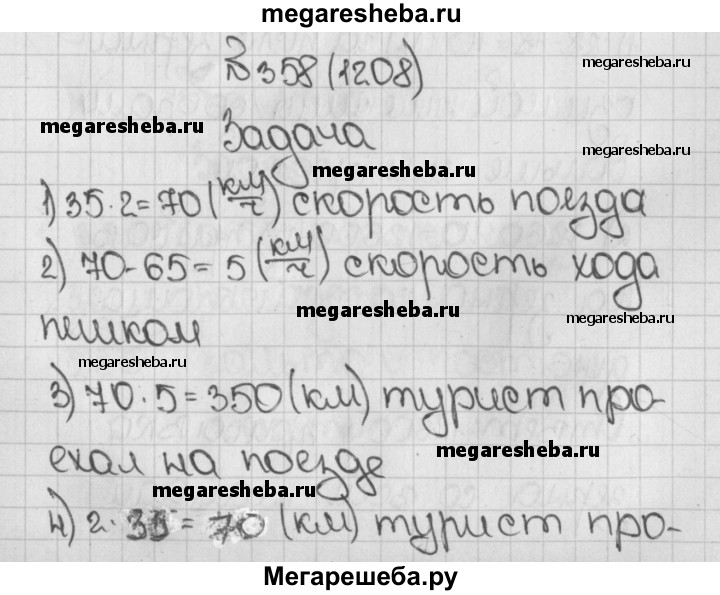 megaresheba.ru
№358 (1208)
megaresheba.ru
megaresheba.ru
Задача
megaresheba.ru
megaresheba.ru
1) 35·2=70 (км/ч) скорость поезда
2) 70-65=5 (км/ч) скорость хода
megaresheba.ru
megaresheba.ru
пешком
megaresheba.ru
3) 70·5=350 (км) турист про-
ехал на поезде
megaresheba.ru
megaresheba.ru
4) 2·35=70 (км) турист про-
Мегарешеба.ру